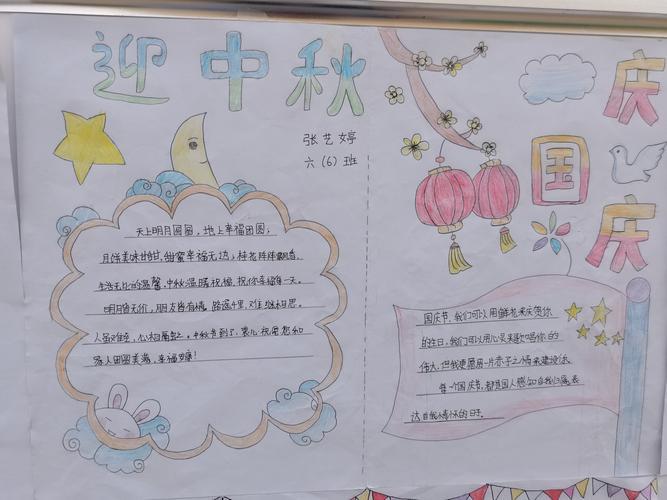 迎中秋
张艺婷
六(6)班
天上明月圆圆，地上幸福团圆；
月饼美味甘甜，甜蜜幸福无边；桂花阵阵飘香，
生活无比的温馨，中秋温暖祝福，祝你幸福每一天。
明月皆无价，朋友皆有情。路遥千里，难继相思。
人虽难经，心相
中秋节到了，衷心祝愿您和
家人团圆美满，幸福安康！
庆
国
庆
国庆节，我们可以用鲜花来庆贺你
的生日，我们可以用心灵来歌唱你的
伟大，但我更愿用一片赤子之情来建设你。
每一个国庆节，都是国人感知自我归属，表
达自我情怀的日子。